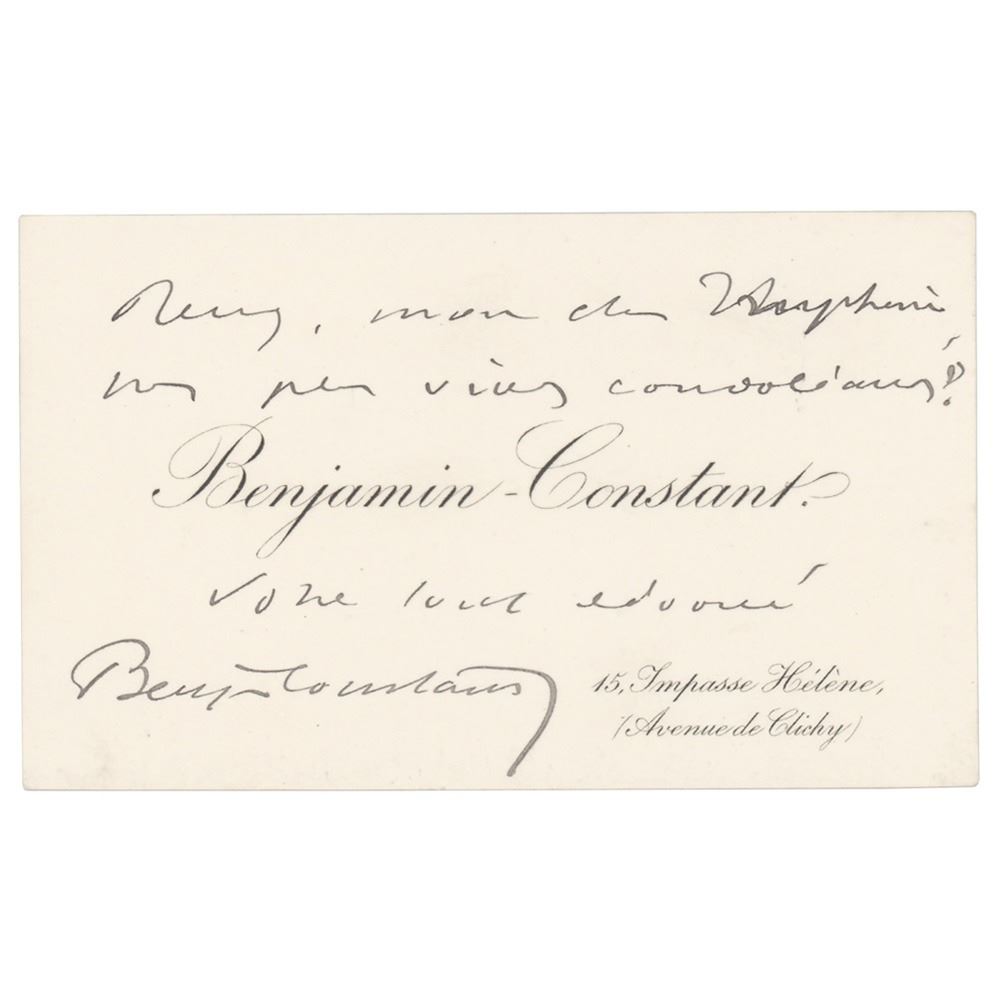 mon cher
vives condoléances
Benjamin-Constant.
Votre tout dévoué
Benj-Constant
15, Impasse Hélène,
(Avenue de Clichy)